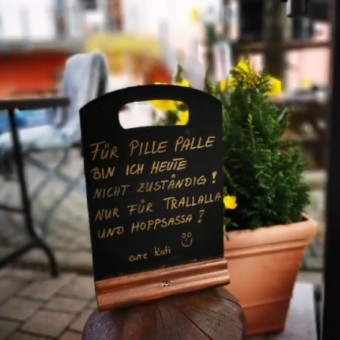 FÜR PILLE PALLE
BIN ICH HEUTE
NICHT ZUSTÄNDIG!
NUR FÜR TRALLALLA
UND HOPPSASSA!
eure Kati